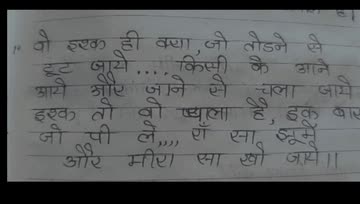 वो इश्क ही क्या, जो तोडने से
टूट जाये.... किसी के आने
आये और जाने से चला जाये
इश्क तो वो प्याला है, इक बार
जो पी ले,,,, सा झूमे
और मीरा सा खो जाये।।